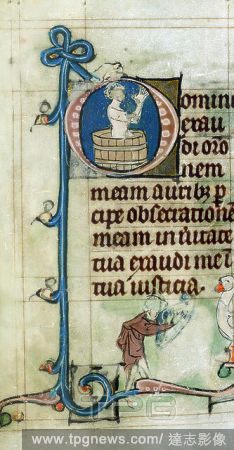 Domine
exau
di oro
nem
meam auribꝫ p
cipe obsecratione
meam in uitate
tua exaudi me i
tua iusticia.
TPG
www.tpgnews.com/ 達志影像